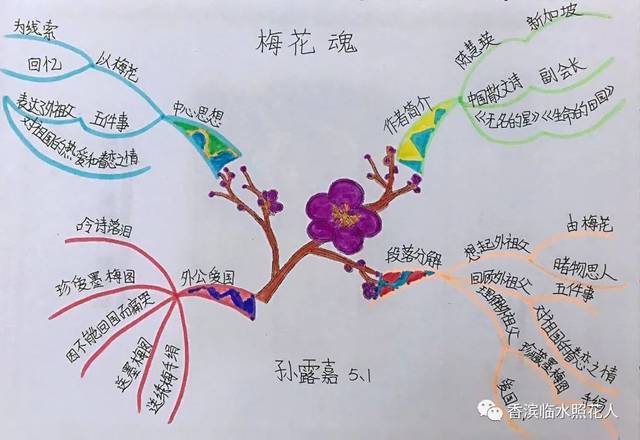 梅花魂
中心思想
以梅花
为线索
回忆
五件事
表达外祖父
对祖国的热爱和眷恋之情
作者简介
陈慧英
新加坡
中国散文诗
副会长
《无名的星》《生命的田园》
外公爱国
吟诗落泪
珍爱墨梅图
因不能回国而痛哭
送墨梅图
送绣梅手绢
段落分解
想起外祖父
由梅花
睹物思人
回顾外祖父
五件事
对祖国的眷恋之情
理解外祖父
珍藏墨梅图
手绢
爱国
孙露嘉 5.1
香滨临水照花人